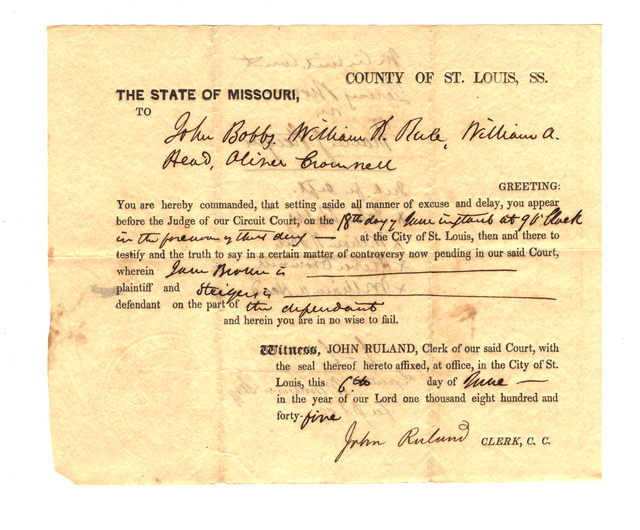 COUNTY OF ST. LOUIS, SS.
THE STATE OF MISSOURI,
TO
John Bobbs, William K. Rule, William A.
Head, Oliver Cromwell
GREETING:
You are hereby commanded, that setting aside all manner of excuse and delay, you appear
before the Judge of our Circuit Court, on the 18th day of June instant at 9 O'Clock
in the forenoon of that day — at the City of St. Louis, then and there to
testify and the truth to say in a certain matter of controversy now pending in our said Court,
wherein Brown is
plaintiff and Steigers is
defendant on the part of the defendant
and herein you are in no wise to fail.
Witness, JOHN RULAND, Clerk of our said Court, with
the seal thereof hereto affixed, at office, in the City of St.
Louis, this 6th day of June —
in the year of our Lord one thousand eight hundred and
forty-five
John Ruland CLERK, C. C.